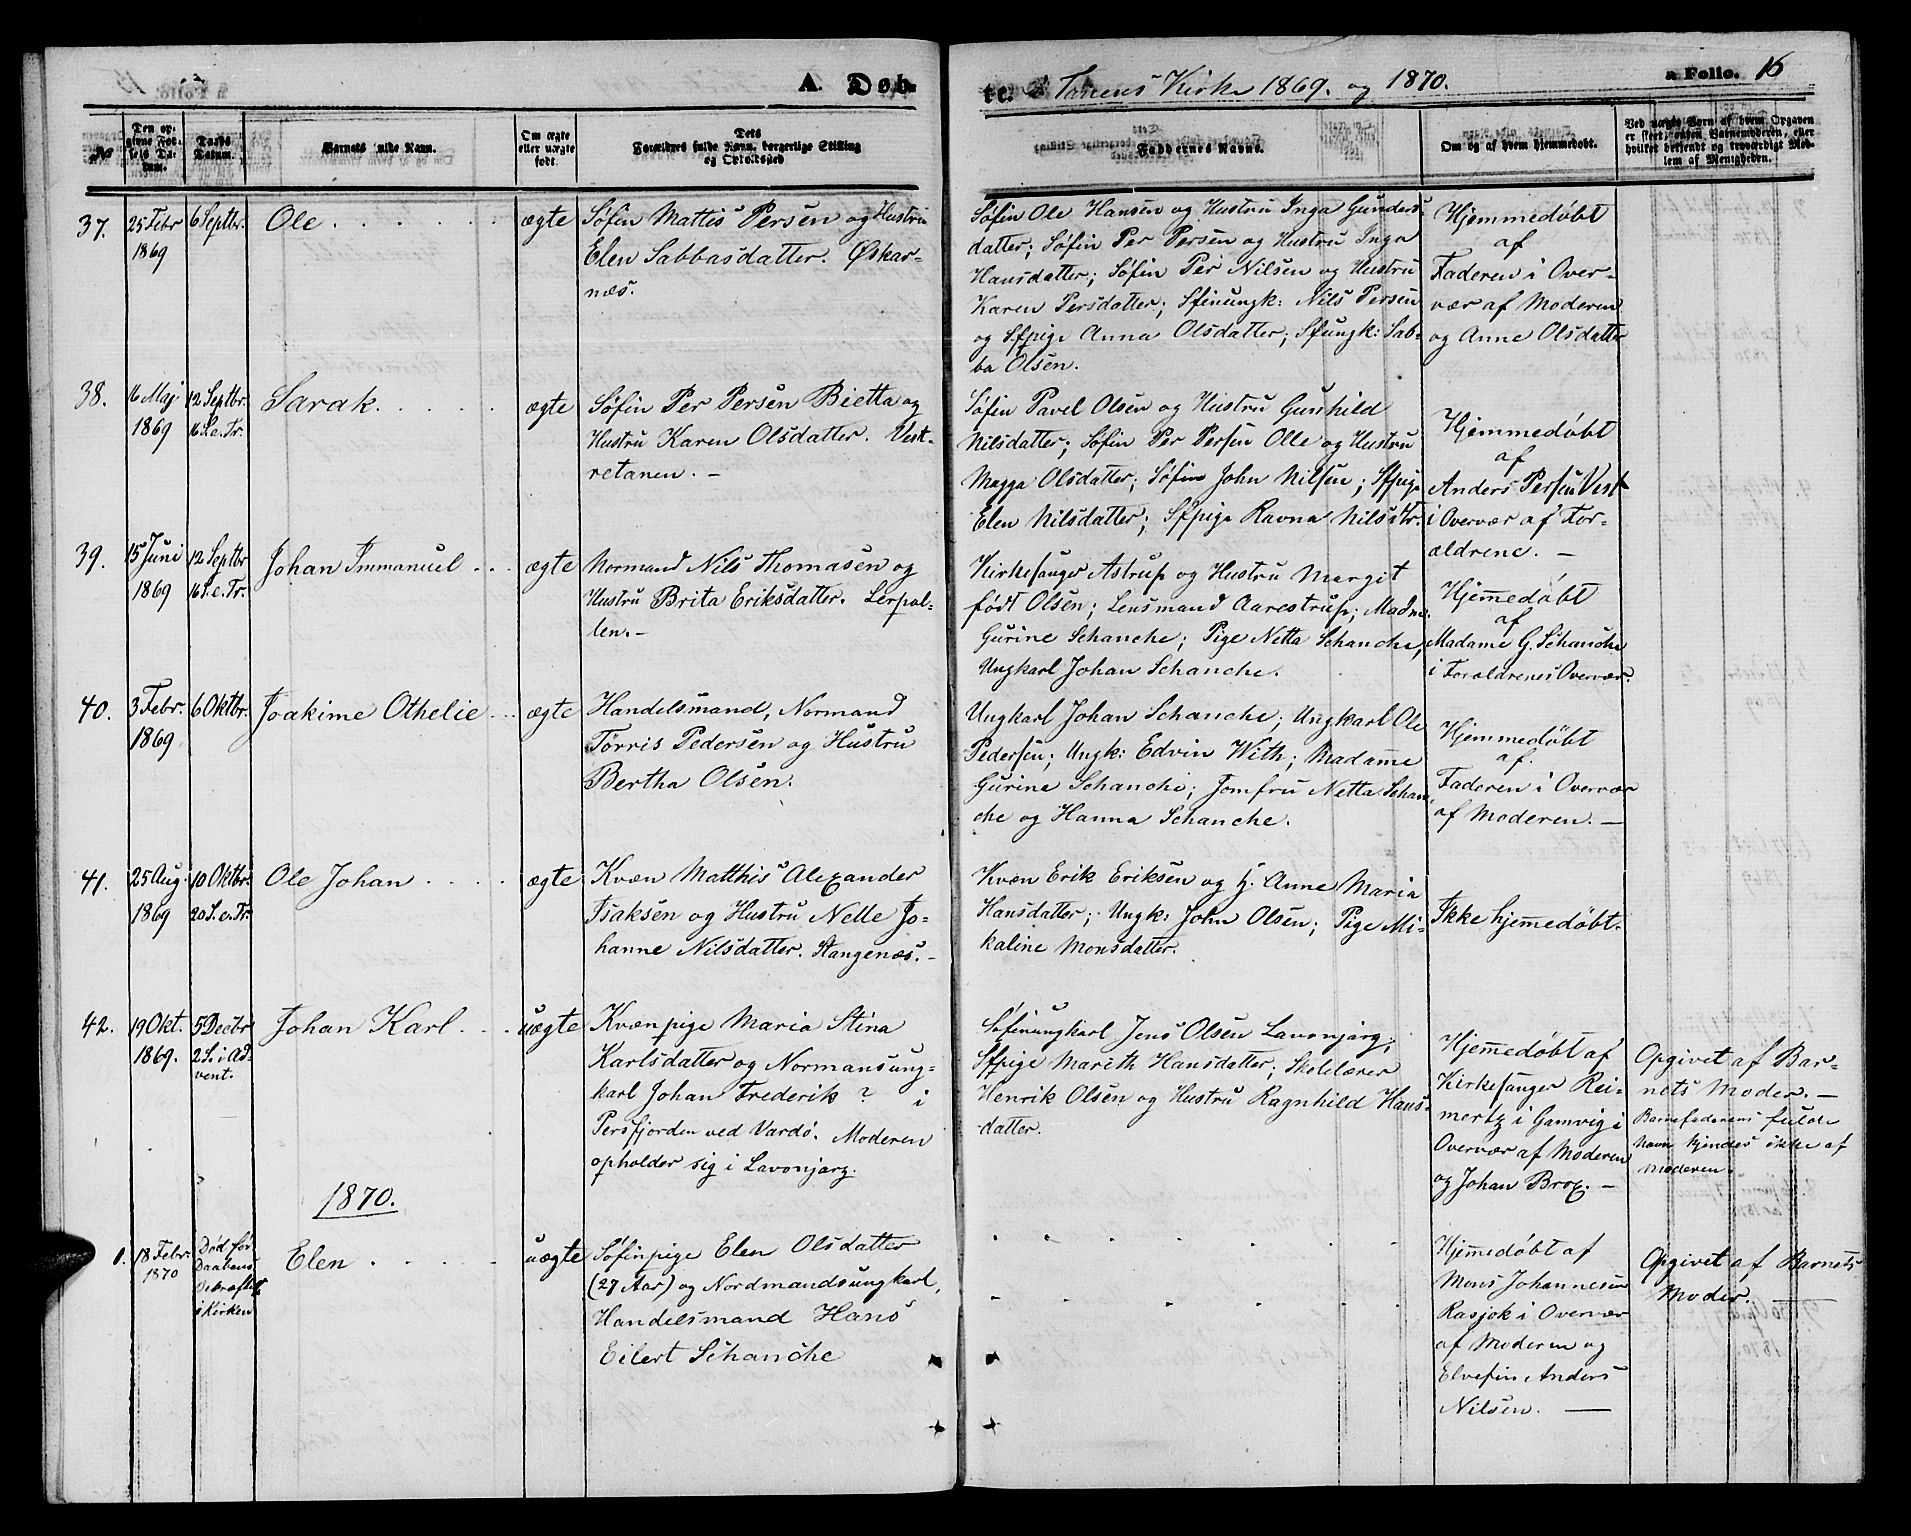 A. Døb-
te. i Tanens Kirke 1869. og 1870.
a Folio. 16
No
Den op-
givne Fød-
sels Da-
tum.
Daabs
Datum.
Barnets fulde Navn.
Om ægte
eller uægte
født.
Dets
Forældres fulde Navn, borgerlige Stilling
og Opholdssted
Faddernes Navne.
Om og af hvem hjemmedøbt.
Ved uægte Børn af hvem Opgaven
er skeet, enten Barnemoderen, eller
hvilket bekjendt og troværdigt Med-
lem af Menigheden.
37.
25 Febr
1869
6 Septbr.
Ole
ægte
Søfin Mattis Persen og Hustru
Elen Sabbasdatter. Øskar-
næs.
Søfin Ole Hansen og Hustru Inga Gunders-
datter; Søfin Per Persen og Hustru Inga
Hansdatter; Søfin Per Nilsen og Hustru
Karen Persdatter; Sfinungk: Nils Persen
og Sfpige Anna Olsdatter; Sfungk: Sab-
ba Olsen.
Hjemmedøbt
af
Faderen i Over-
vær af Moderen
og Anne Olsdatter
38.
16 Maj
1869
12 Septbr.
16 S. e. Tr.
Sarak
ægte
Søfin Per Persen Bietta og
Hustru Karen Olsdatter. Vest-
retanen. -
Søfin Pavel Olsen og Hustru Gunhild
Nilsdatter; Søfin Per Persen Olle og Hustru
Magga Olsdatter; Søfin John Nilsen; Sfpige
Elen Nilsdatter; Sfpige Ravna Nilsdtr.
Hjemmedøbt
af
Anders Persen Vest
i Overvær af For-
ældrene. -
39.
15 Juni
1869
12 Septbr
16 S. e. Tr.
Johan Immanuel
ægte
Normand Nils Thomasen og
Hustru Brita Eriksdatter. Lerpol-
len. -
Kirkesanger Astrup og Hustru Margit
født Olsen; Lensmand Aarestrup; Madm.
Gurine Schanche; Pige Netta Schanche,
Ungkarl Johan Schanche.
Hjemedøbt
af
Madame G. Schanche
i Forældrenes Overvær.
40.
3 Febr.
1869
6 Oktbr.
Joakime Othelie
ægte
Handelsmand, Normand
Tørris Pedersen og Hustru
Bertha Olsen.
Ungkarl Johan Schanche; Ungkarl Ole
Pedersen; Ungk: Edvin With; Madame
Gurine Schanche; Jomfru Netta Schan-
che og Hanna Schanche.
Hjemmedøbt
af.
Faderen i Overvær
af Moderen. -
41.
25 Aug.
1869
10 Oktbr.
20 S. e. Tr.
Ole Johan
ægte
Kvæn Matthis Alexander
Isaksen og Hustru Nelle Jo-
hanne Nilsdatter. Stangenæs. -
Kvæn Erik Eriksen og H. Anne Maria
Hansdatter; Ungk: John Olsen; Pige Mi-
kaline Monsdatter.
Ikke hjemedøbt.
42.
19 Okt.
1869.
5 Decbr
2 S. i Ad-
vent.
Johan Karl
uægte
Kvænpige Maria Stina
Karlsdatter og Normansung-
karl Johan Frederik ? i
Persfjorden ved Vardø. Moderen
opholder sig i Lavonjarg.
Søfinungkarl Jens Olsen Lavonjarg;
Sfpige Mareth Hansdatter; Skolelærer
Henrik Olsen og Hustru Ragnhild Hans-
datter.
Hjemedøbt af
Kirkesanger Rei-
mertz i Gamvig i
Overvær af Moderen
og Johan Brox. -
Opgivet af Bar-
nets Moder. -
Barnefaderens fulde
Navn kjendes ikke af
Moderen.
1870.
1.
18 Febr.
1870
Død før
Daabens
Bekræftelse
i Kirken
Elen
uægte
Søfinpige Elen Olsdatter
(27 Aar) og Nordmandsungkarl,
Handelsmand Hans
Eilert Schanche
Hjemedøbt af
Mons Johannesen
Rasjok i Overvær
af Moderen og
Elvefin Anders
Nilsen. -
Opgivet af Barnets
Moder.